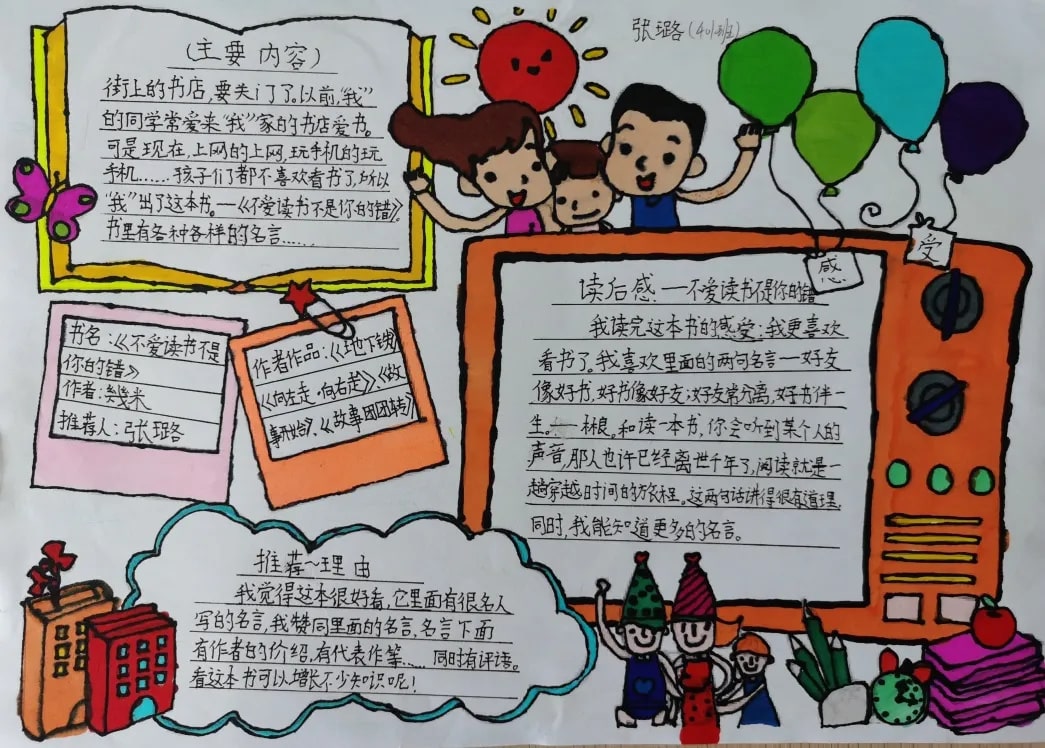 张璐(401班)
(主要内容)
街上的书店,要关门了。以前,“我”
的同学常爱来“我”家的书店爱书。
可是现在,上网的上网,玩手机的玩
手机……孩子们了都不喜欢看书了,所以
“我”出了这本书。—《不爱读书不是你的错》.
书里有各种各样的名言……
书名:《不爱读书不是
你的错》
作者:幾米
推荐人:张璐
作者作品:《地下铁》
《向左走·向右走》、《故
事开始》、《故事团团转》
感
受
读后感——不爱读书不是你的错
我读完这本书的感受:我更喜欢
看书了。我喜欢里面的两句名言一好友
像好书,好书像好友;好友常分离,好书伴一
生。 林良。和读一本书,你会听到某个人的
声音,那人也许已经离世千年了,阅读就是一
趟穿越时间的旅程。这两句话讲得很有道理,
同时,我能知道更多的名言。
推荐~理由
我觉得这本很好看,它里面有很名人
写的名言,我赞同里面的名言,名言下面
有作者的介绍,有代表作等……同时有评语。
看这本书可以增长不少知识呢!